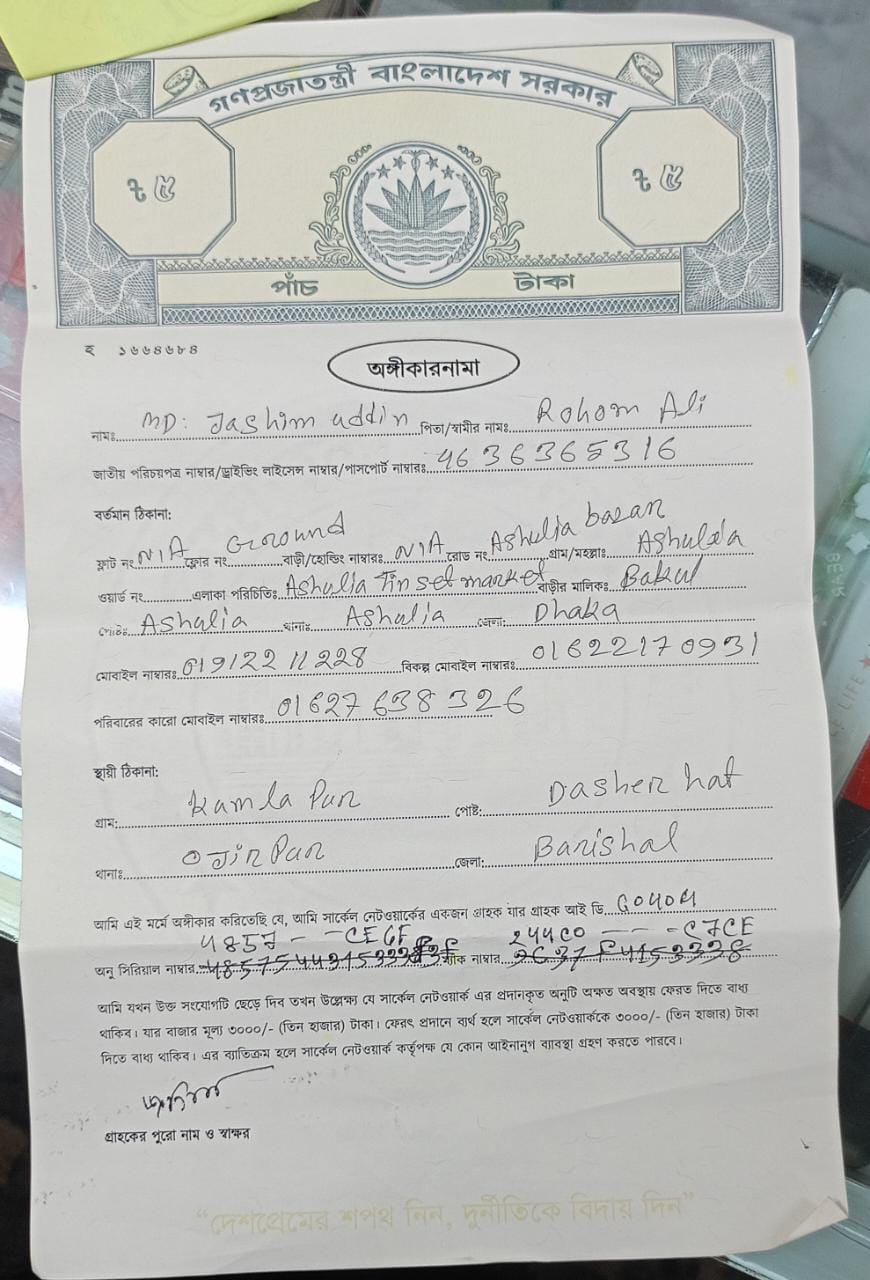 গণপ্রজাতন্ত্রী বাংলাদেশ সরকার
৳ ৫ ৳ ৫
পাঁচ টাকা
হ ১৬৬৪৬৮৪
অঙ্গীকারনামা
নামঃ MD: Jashim uddin পিতা/স্বামীর নামঃ Rohom Ali
জাতীয় পরিচয়পত্র নাম্বার/ড্রাইভিং লাইসেন্স নাম্বার/পাসপোর্ট নাম্বারঃ 4636365316
বর্তমান ঠিকানা:
ফ্লাট নং N/A ফ্লোর নং Ground বাড়ী/হোল্ডিং নাম্বারঃ N/A রোড নং Ashulia bazar গ্রাম/মহল্লাঃ Ashulia
ওয়ার্ড নং এলাকা পরিচিতিঃ Ashulia Tin set market বাড়ীর মালিকঃ Bakul
পোষ্টঃ Ashulia থানাঃ Ashulia জেলা: Dhaka
মোবাইল নাম্বারঃ 01912211228 বিকল্প মোবাইল নাম্বারঃ 01622170931
পরিবারের কারো মোবাইল নাম্বারঃ 01627638326
স্থায়ী ঠিকানা:
গ্রাম: Kamla Pur পোষ্ট: Dasher hat
থানাঃ OJirPur জেলা: Barishal
আমি এই মর্মে অঙ্গীকার করিতেছি যে, আমি সার্কেল নেটওয়ার্কের একজন গ্রাহক যার গ্রাহক আই ডি
4857 - - CECF 244C0 - - - C7CE
অনু সিরিয়াল নাম্বার ম্যাক নাম্বার
আমি যখন উক্ত সংযোগটি ছেড়ে দিব তখন উল্লেক্ষ্য যে সার্কেল নেটওয়ার্ক এর প্রদানকৃত অনুটি অক্ষত অবস্থায় ফেরত দিতে বাধ্য
থাকিব। যার বাজার মূল্য ৩০০০/- (তিন হাজার) টাকা। ফেরৎ প্রদানে ব্যর্থ হলে সার্কেল নেটওয়ার্ককে ৩০০০/- (তিন হাজার) টাকা
দিতে বাধ্য থাকিব। এর ব্যতিক্রম হলে সার্কেল নেটওয়ার্ক কর্তৃপক্ষ যে কোন আইনানুগ ব্যবস্থা গ্রহণ করতে পারবে।
গ্রাহকের পুরো নাম ও স্বাক্ষর
“দেশপ্রেমের শপথ নিন, দুর্নীতিকে বিদায় দিন”